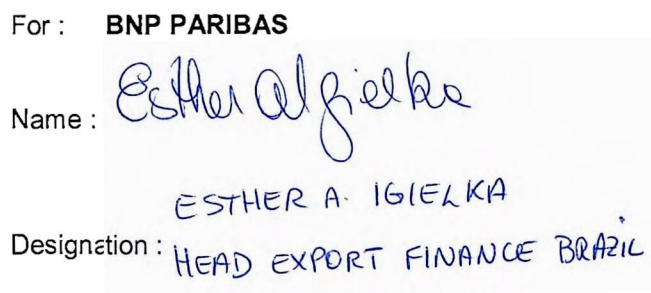 For : BNP PARIBAS
Name : Esther A Igielka
ESTHER A. IGIELKA
Designation : HEAD EXPORT FINANCE BRAZIL